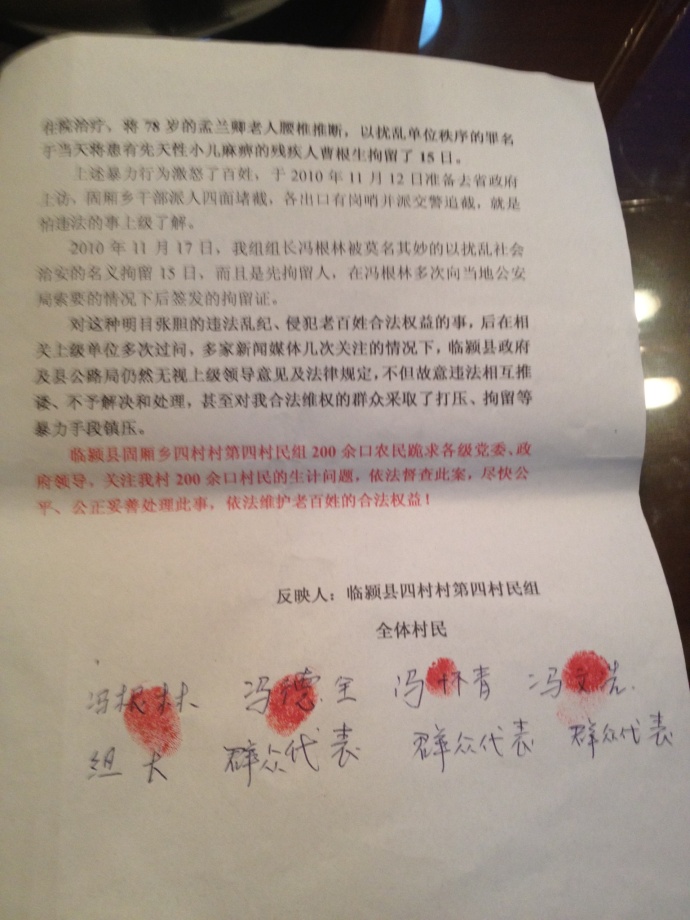 在院治疗、将 78 岁的孟兰卿老人腰椎推断，以扰乱单位秩序的罪名
于当天将患有先天性小儿麻痹的残疾人曹根生拘留了 15 日。
上述暴力行为激怒了百姓，于 2010 年 11 月 12 日准备去省政府
上访，固厢乡干部派人四面堵截，各出口有岗哨并派交警追截，就是
怕违法的事上级了解。
2010 年 11 月 17 日，我组组长冯根林被莫名其妙的以扰乱社会
治安的名义拘留 15 日，而且是先拘留人，在冯根林多次向当地公安
局索要的情况下后签发的拘留证。
对这种明目张胆的违法乱纪、侵犯老百姓合法权益的事，后在相
关上级单位多次过问，多家新闻媒体几次关注的情况下，临颍县政府
及县公路局仍然无视上级领导意见及法律规定，不但故意违法相互推
诿、不予解决和处理，甚至对我合法维权的群众采取了打压、拘留等
暴力手段镇压。
临颍县固厢乡四村村第四村民组 200 余口农民跪求各级党委、政
府领导，关注我村 200 余口村民的生计问题，依法督查此案，尽快公
平、公正妥善处理此事，依法维护老百姓的合法权益！
反映人：临颍县四村村第四村民组
全体村民
冯根林 冯德全 冯怀青 冯文
组长 群众代表 群众代表 群众代表